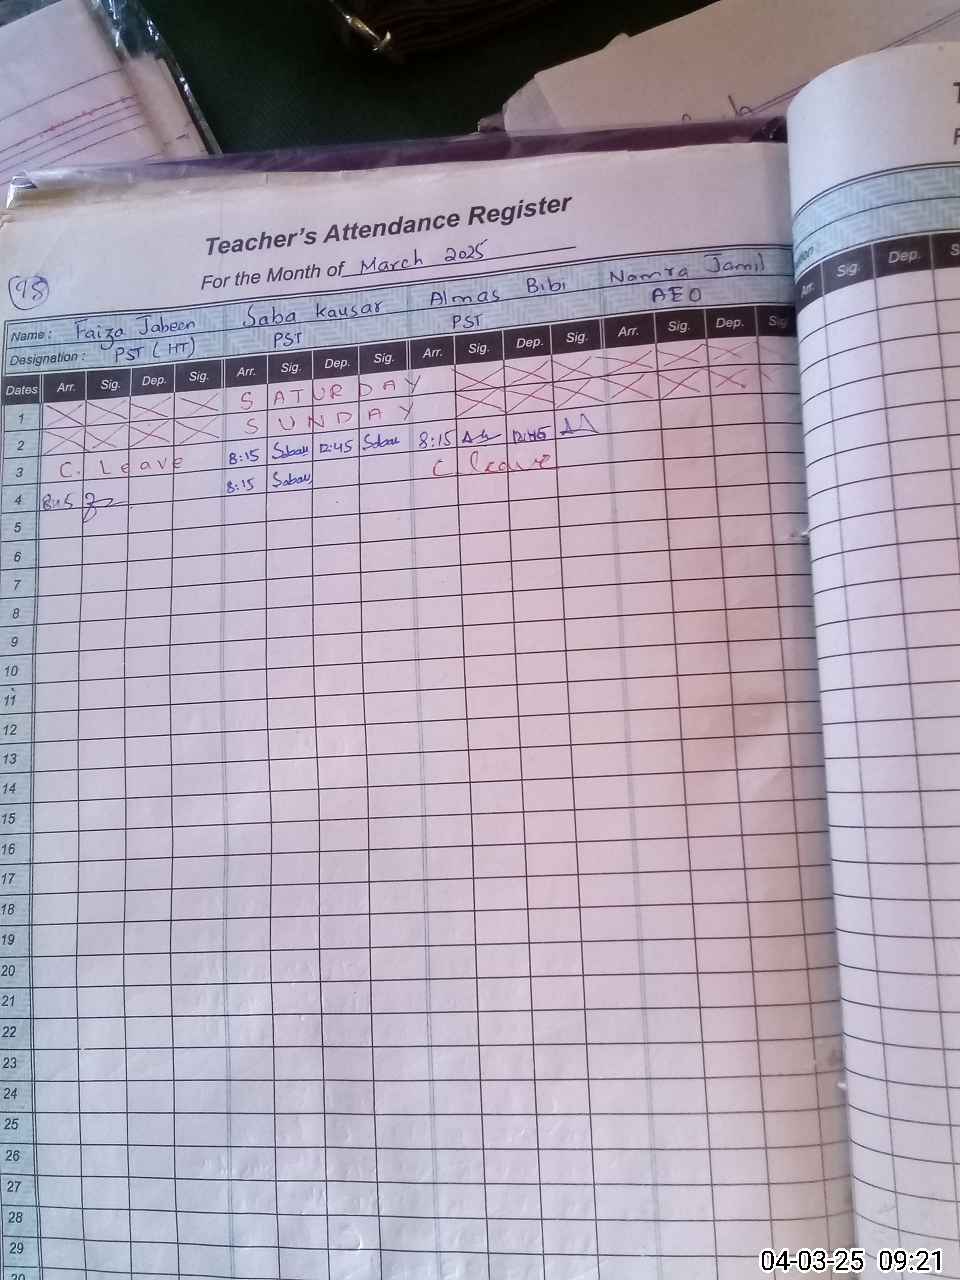 Teacher's Attendance Register
For the Month of March 2025
98
Name: Faiza Jabeen Saba Kausar Almas Bibi Namra Jamil
Designation: PST (HT) PST PST AEO
Dates Arr. Sig. Dep. Sig. Arr. Sig. Dep. Sig. Arr. Sig. Dep. Sig. Arr. Sig. Dep. Sig
1 SATURDAY
2 SUNDAY
3 C. Leave 8:15 Sabau 12:45 Sabau 8:15 12:45
4 8:15 8:15 Sabau C leave
5
6
7
8
9
10
11
12
13
14
15
16
17
18
19
20
21
22
23
24
25
26
27
28
29
30
Arr. Sig. Dep. S
04-03-25 09:21